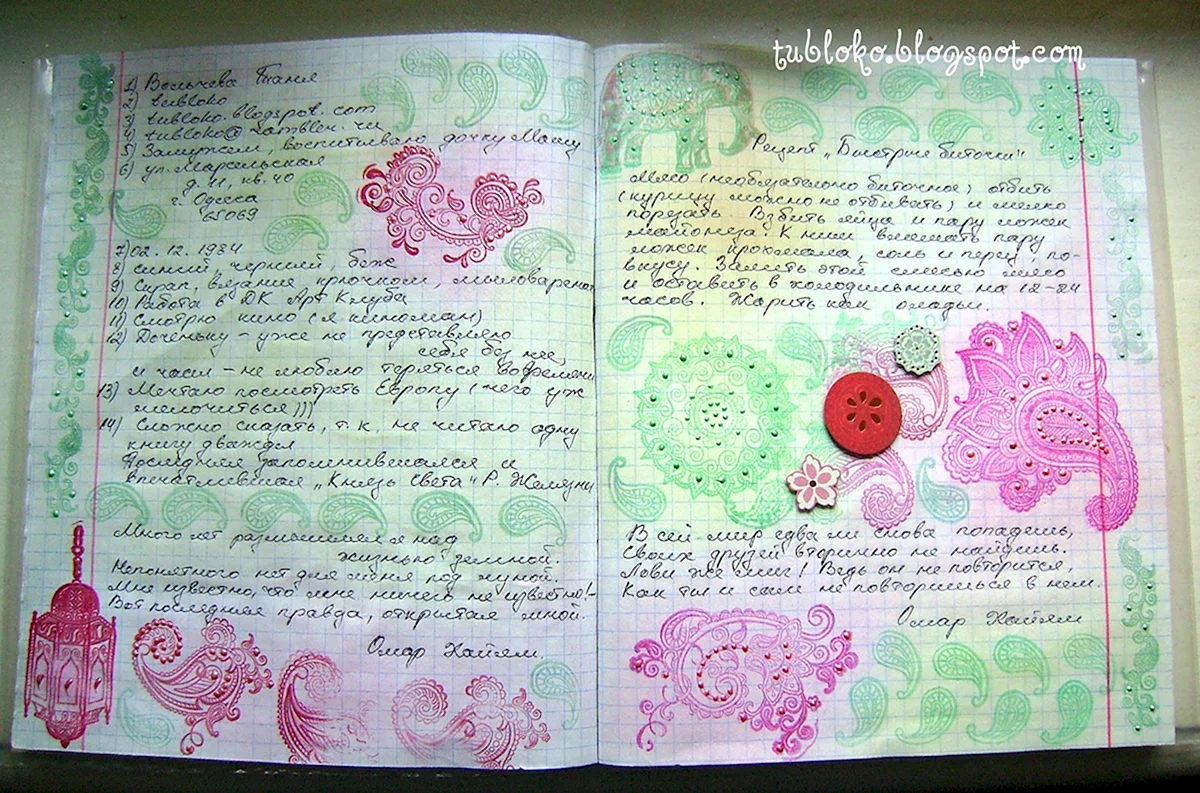 tubloko.blogspot.com
1) Вельчева Таня
2) tubloko
3) tubloko.blogspot.com
4) tubloko@rambler.ru
5) Замужем, воспитываю дочку Машу
6) ул. Марсельская
д. 11, кв. 40
г. Одесса
65069
7) 02.12.1984
8) синий, черный, беж
9) Скрап, вязание крючком, мыловарение
10) Работа в ДК Арт Клуба
11) Смотрю кино (я киноман)
12) Доченьку - уже не представляю
себя без нее,
и часы - не люблю теряться во времени
13) Мечтаю посмотреть Европу (чего уж
мелочиться)))
14) Сложно сказать, т.к. не читаю одну
книгу дважды
Последняя запомнившаяся и
впечатлившая „Князь Света" Р. Желязны
Много лет размышлял я над
жизнью земной.
Непонятного нет для меня под луной.
Мне известно, что мне ничего не известно! -
Вот последняя правда, открытая мной.
Омар Хайям.
Рецепт „Быстрые биточки"
Мясо (необязательно биточное) отбить
(курицу можно не отбивать) и мелко
порезать. Взбить яйца и пару ложек
майонеза. К ним вмешать пару
ложек крохмала, соль и перец по-
вкусу. Залить этой смесью мясо
и оставить в холодильнике на 12-24
часов. Жарить как оладьи.
В сей мир едва ли снова попадешь,
Своих друзей вторично не найдешь.
Лови же миг! Ведь он не повторится,
Как ты и сам не повторишься в нем.
Омар Хайям